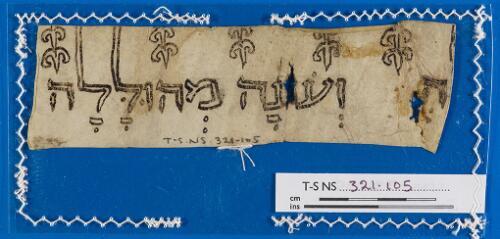 ת וְעוֹנָה מְהוּלָלָה
T-S. NS. 321-105
T-S NS 321-105
cm
ins